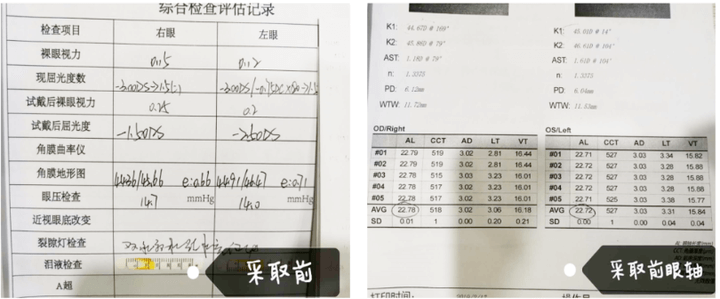 综合检查评估记录
检查项目 右眼 左眼
裸眼视力 0.15 0.12
现屈光度数
试戴后裸眼视力 0.25 0.2
试戴后屈光度 -1.50DS -2.50DS
角膜曲率仪
角膜地形图 e:0.66 e:0.71
眼压检查 14.7 mmHg 14.0 mmHg
近视眼底改变
裂隙灯检查
泪液检查
A超
采取前
K1: 44.67D @ 169° K1: 45.01D @ 14°
K2: 45.86D @ 79° K2: 46.61D @ 104°
AST: 1.19D @ 79° AST: 1.61D @ 104°
n: 1.3375 n: 1.3375
PD: 6.12mm PD: 6.04mm
WTW: 11.72mm WTW: 11.53mm
OD/Right OS/Left
AL CCT AD LT VT AL CCT AD LT VT
#01 22.79 519 3.02 2.81 16.44 #01 22.71 527 3.03 3.34 15.82
#02 22.79 519 3.02 2.81 16.44 #02 22.72 527 3.03 3.28 15.88
#03 22.78 515 3.03 3.23 16.01 #03 22.72 527 3.03 3.28 15.88
#04 22.78 517 3.02 3.23 16.01 #04 22.72 527 3.03 3.28 15.88
#05 22.78 517 3.02 3.23 16.01 #05 22.71 525 3.03 3.37 15.77
AVG 22.78 518 3.02 3.06 16.18 AVG 22.72 527 3.03 3.31 15.84
SD 0.01 1 0.00 0.20 0.21 SD 0.00 1 0.00 0.04 0.04
采取前眼轴
打印时间: